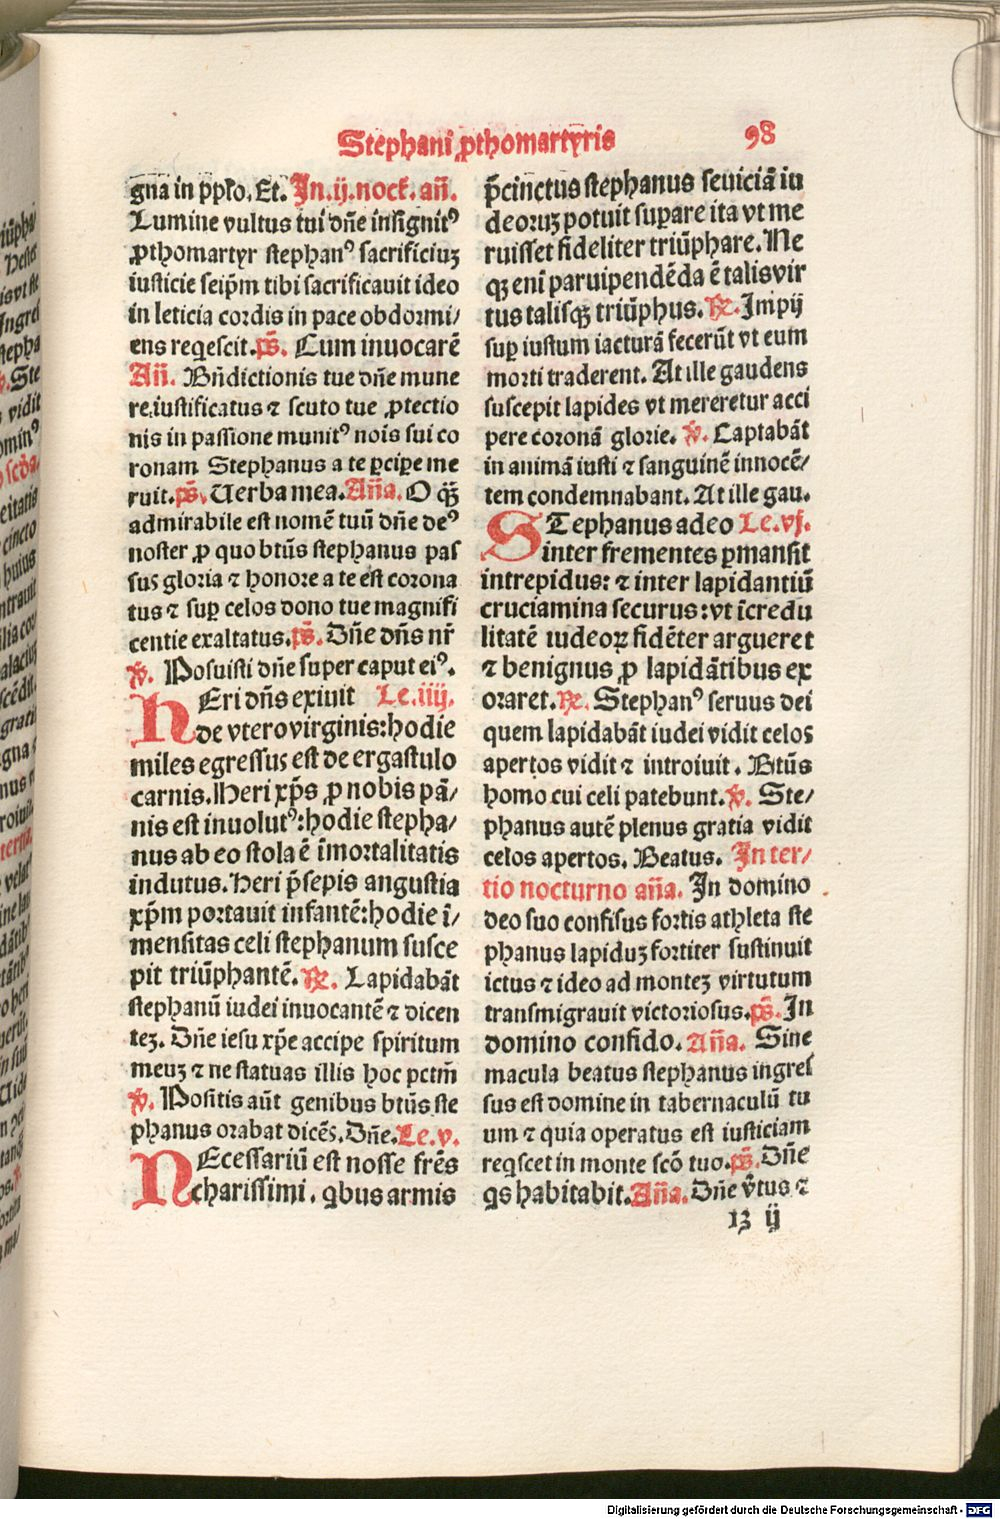 Stephani ꝓthomartyris 98
gna in ppło. Et. In .ij. nocť. añ.
Lumine vultus tui dñe insignitꝰ
ꝓthomartyr stephanꝰ sacrificiuꝫ
iusticie seip̄m tibi sacrificauit ideo
in leticia cordis in pace obdormi/
ens reꝗescit. ps̄. Cum inuocarē
Añ. Bñdictionis tue dñe mune
re iustificatus ⁊ scuto tue ꝓtectio
nis in passione munitꝰ nois sui co
ronam Stephanus a te ꝑciꝑe me
ruit. ps̄. Uerba mea. Aña. O qꝫ̄
admirabile est nomē tuū dñe deꝰ
noster ꝓ quo btūs stephanus pas
sus gloria ⁊ honore a te est corona
tus ⁊ suꝑ celos dono tue magnifi
centie exaltatus. ps̄. Dñe dñs nr̄
v̄. Posuisti dñe super caput eiꝰ.
HEri dñs exiuit Le. iiij.
de vtero virginis: hodie
miles egressus est de ergastulo
carnis. Heri xp̄s ꝓ nobis pā/
nis est inuolutꝰ: hodie stepha/
nus ab eo stola ē īmortalitatis
indutus. Heri p̄sepis angustia
xp̄m portauit infantē: hodie ī/
mensitas celi stephanum susce
pit triūphantē. ꝶ. Lapidabāt
stephanū iudei inuocantē ⁊ dicen
teꝫ. Dñe iesu xp̄e accipe spiritum
meuꝫ ⁊ ne statuas illis hoc pctm̄
v̄. Positis aūt genibus btūs ste
phanus orabat dicēs. Dñe. Le. v.
NEcessariū est nosse frēs
charissimi. ꝗbus armis
p̄cinctus stephanus seuiciā iu
deoruꝫ potuit suꝑare ita vt me
ruisset fideliter triūphare. Ne
qꝫ eni paruipendēda ē talis vir
tus talisqꝫ triūphus. ꝶ. Impij
suꝑ iustum iacturā fecerūt vt eum
morti traderent. At ille gaudens
suscepit lapides vt mereretur acci
pere coronā glorie. v̄. Captabāt
in animā iusti ⁊ sanguinē innocē/
tem condemnabant. At ille gau.
STephanus a deo Le. vj.
inter frementes ꝑmansit
intrepidus: ⁊ inter lapidantiū
cruciamina securus: vt īcredu
litatē iudeoꝝ fidēter argueret
⁊ benignus ꝓ lapidātibus ex
oraret. ꝶ. Stephanꝰ seruus dei
quem lapidabāt iudei vidit celos
apertos vidit ⁊ introiuit. Btūs
homo cui celi patebunt. v̄. Ste/
phanus autē plenus gratia vidit
celos apertos. Beatus. In ter/
tio nocturno aña. In domino
deo suo confisus fortis athleta ste
phanus lapiduꝫ fortiter sustinuit
ictus ⁊ ideo ad monteꝫ virtutum
transmigrauit victoriosus. ps̄. In
domino confido. Aña. Sine
macula beatus stephanus ingres
sus est domine in tabernaculū tu
um ⁊ quia operatus est iusticiam
reꝗscet in monte scō tuo. ps̄. Dñe
ꝗs habitabit. Aña. Dñe v̄tus ⁊
13 ij
Digitalisierung gefördert durch die Deutsche Forschungsgemeinschaft - DFG